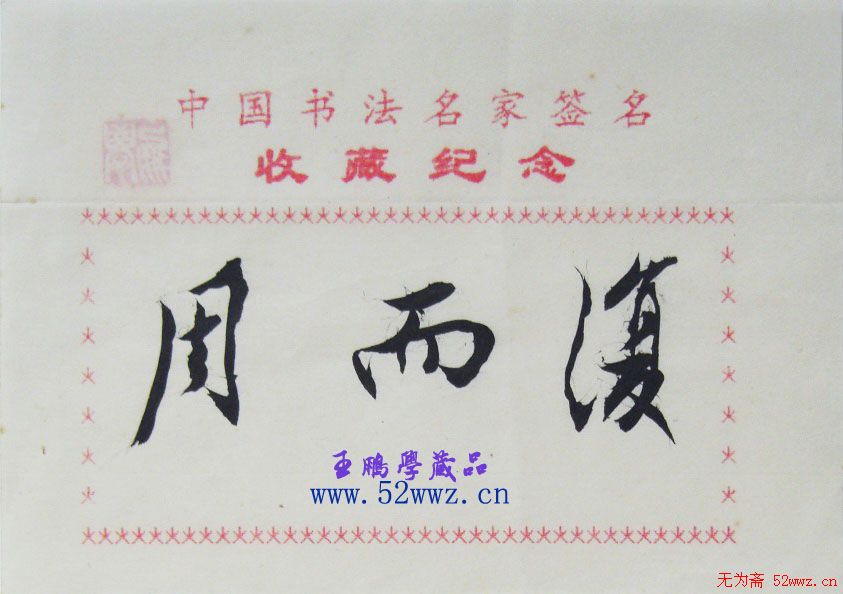 中国书法名家签名
收藏纪念
周而復
王鹏學藏品
www.52wwz.cn
无为斋 52wwz.cn